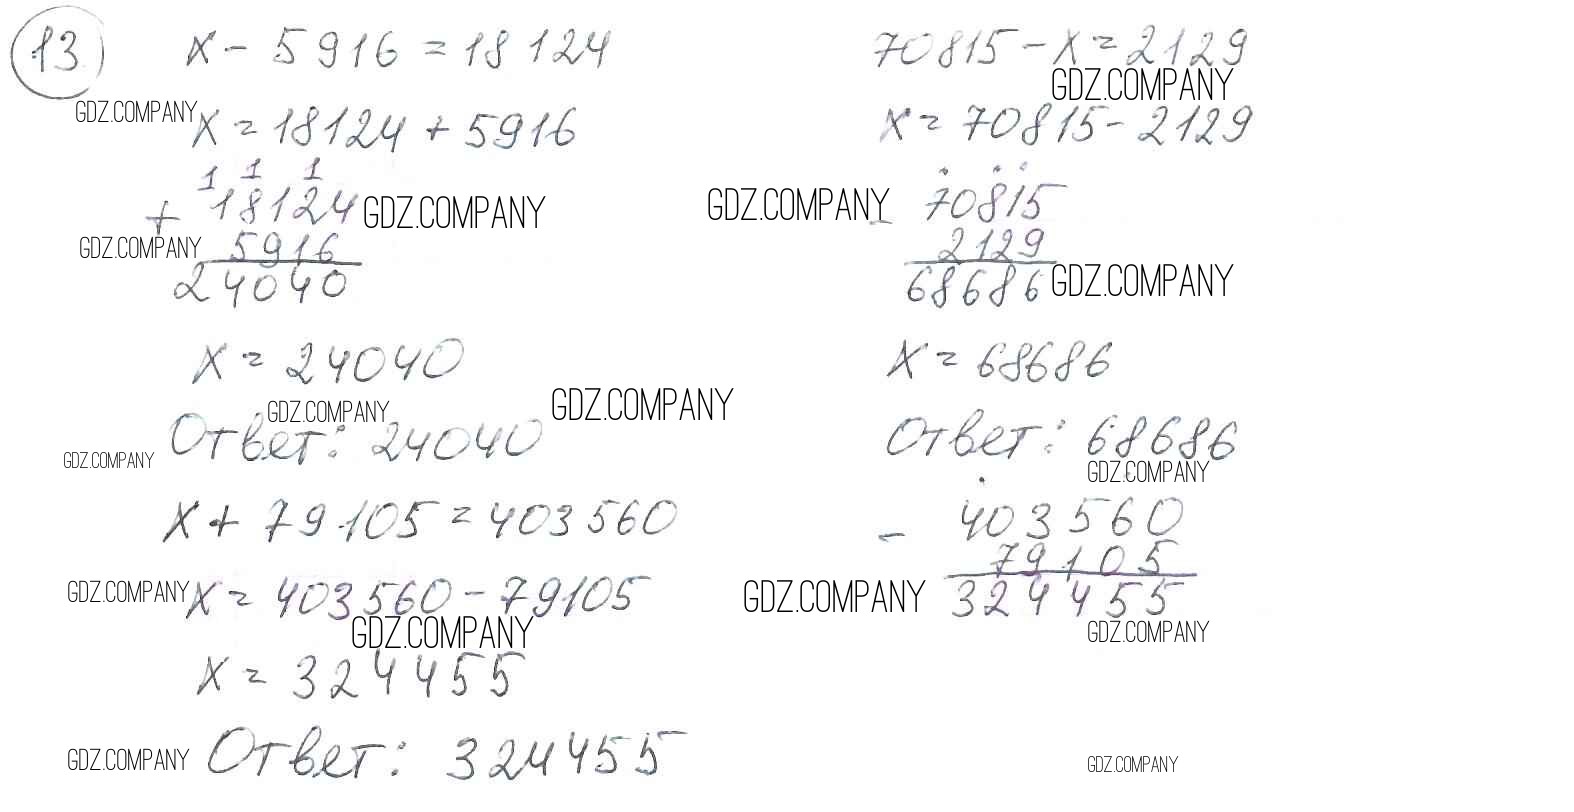 13
x - 5916 = 18124
GDZ.COMPANY
x = 18124 + 5916
1 1 1
+ 18124
GDZ.COMPANY
GDZ.COMPANY
5916
24040
x = 24040
GDZ.COMPANY
GDZ.COMPANY
Ответ: 24040
GDZ.COMPANY
70815 - x = 2129
GDZ.COMPANY
x = 70815 - 2129
GDZ.COMPANY
- 70815
2129
68686
GDZ.COMPANY
x = 68686
Ответ: 68686
GDZ.COMPANY
x + 79105 = 403560
GDZ.COMPANY
x = 403560 - 79105
GDZ.COMPANY
x = 324455
GDZ.COMPANY
Ответ: 324455
- 403560
79105
GDZ.COMPANY
324455
GDZ.COMPANY
GDZ.COMPANY